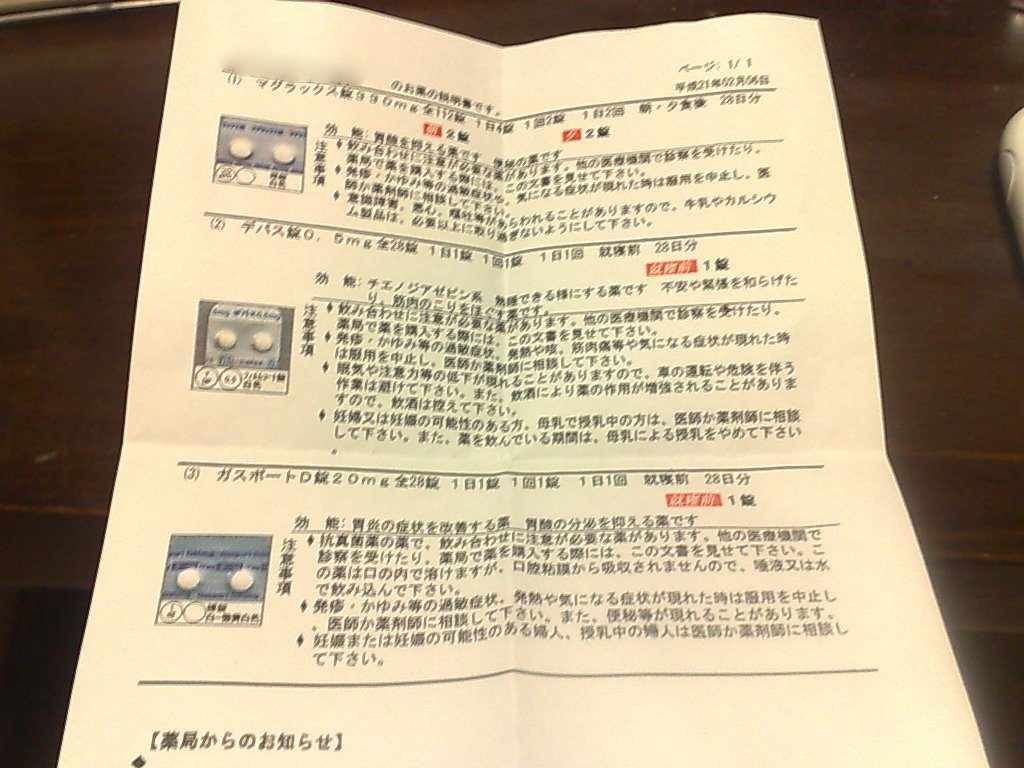 ページ: 1/ 1
のお薬の説明書です。
平成21年02月06日
(1) マグラックス錠330mg 全112錠 1日4錠 1回2錠 1日2回 朝・夕食後 28日分
朝 2錠 夕 2錠
効 能: 胃酸を抑える薬です 便秘の薬です
注意事項
♦ 飲み合わせに注意が必要な薬があります。他の医療機関で診察を受けたり、
薬局で薬を購入する際には、この文書を見せて下さい。
♦ 発疹・かゆみ等の過敏症状や、気になる症状が現れた時は服用を中止し、医
師か薬剤師に相談して下さい。
♦ 意識障害、悪心、嘔吐等があらわれることがありますので、牛乳やカルシウ
ム製品は、必要以上に取り過ぎないようにして下さい。
(2) デパス錠0．5mg 全28錠 1日1錠 1回1錠 1日1回 就寝前 28日分
就寝前 1錠
効 能: チエノジアゼピン系 熟睡できる様にする薬です 不安や緊張を和らげた
り、筋肉のこりをほぐす薬です。
注意事項
♦ 飲み合わせに注意が必要な薬があります。他の医療機関で診察を受けたり、
薬局で薬を購入する際には、この文書を見せて下さい。
♦ 発疹・かゆみ等の過敏症状、発熱や咳、筋肉痛等や気になる症状が現れた時
は服用を中止し、医師か薬剤師に相談して下さい。
♦ 眠気や注意力等の低下が現れることがありますので、車の運転や危険を伴う
作業は避けて下さい。また、飲酒により薬の作用が増強されることがありま
すので、飲酒は控えて下さい。
♦ 妊婦又は妊娠の可能性のある方、母乳で授乳中の方は、医師か薬剤師に相談
して下さい。また、薬を飲んでいる期間は、母乳による授乳をやめて下さい
。
白色
(3) ガスポートD錠20mg 全28錠 1日1錠 1回1錠 1日1回 就寝前 28日分
就寝前 1錠
効 能: 胃炎の症状を改善する薬 胃酸の分泌を抑える薬です
注意事項
♦ 抗真菌薬の薬で、飲み合わせに注意が必要な薬があります。他の医療機関で
診察を受けたり、薬局で薬を購入する際には、この文書を見せて下さい。こ
の薬は口の内で溶けますが、口腔粘膜から吸収されませんので、唾液又は水
で飲み込んで下さい。
♦ 発疹・かゆみ等の過敏症状、発熱や気になる症状が現れた時は服用を中止し
、医師か薬剤師に相談して下さい。また、便秘等が現れることがあります。
♦ 妊娠または妊娠の可能性のある婦人、授乳中の婦人は医師か薬剤師に相談し
て下さい。
【薬局からのお知らせ】
◆